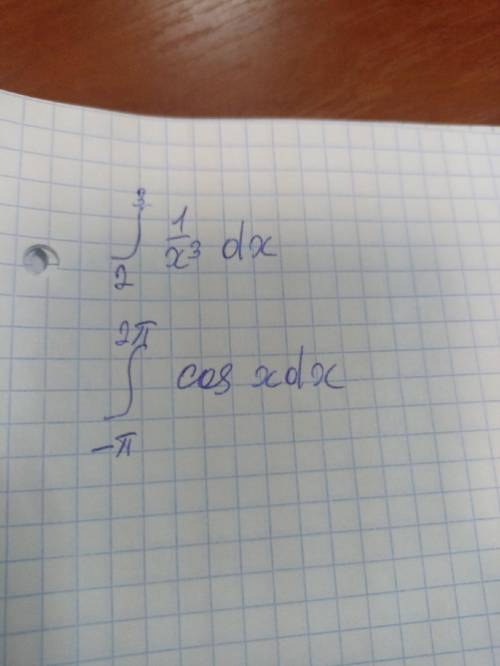 ∫₂³ 1/x³ dx
∫₋π^2π cos x dx